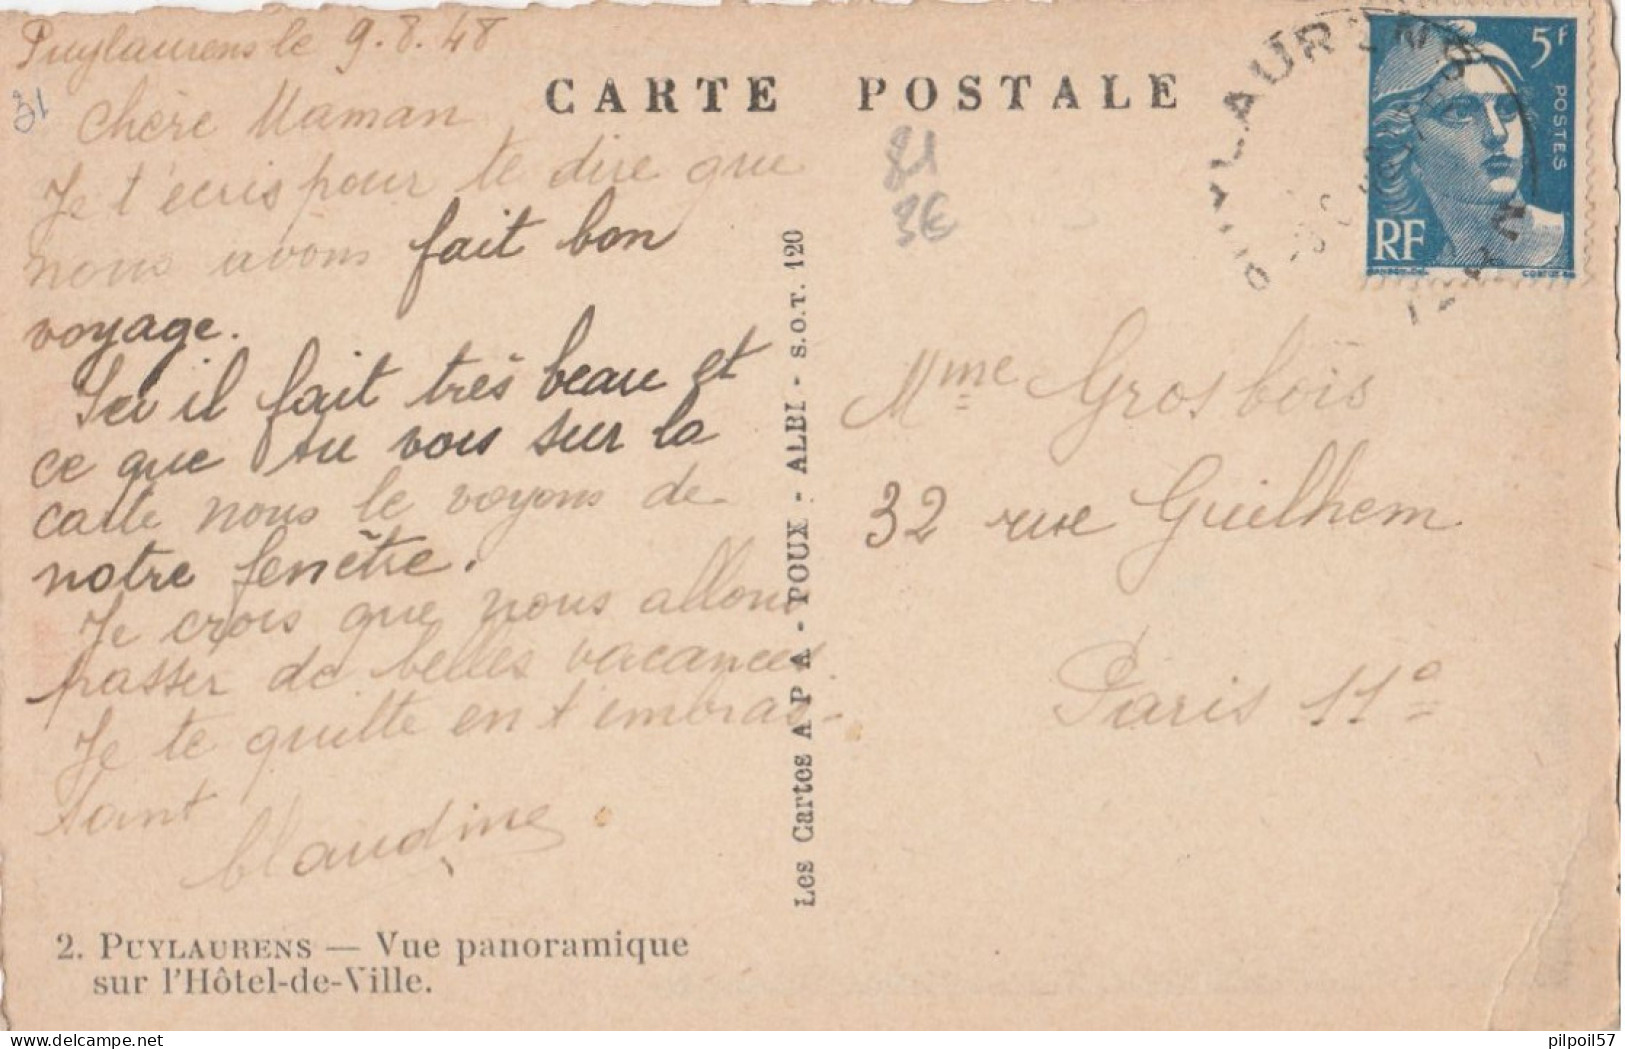 Puylaurens le 9.8.48
81
Chère Maman
Je t'écris pour te dire que
nous avons fait bon
voyage.
Ici il fait très beau et
ce que tu vois sur la
carte nous le voyons de
notre fenêtre.
Je crois que nous allons
passer de belles vacances.
Je te quitte en t'embras-
sant
Claudine.
2. PUYLAURENS — Vue panoramique
sur l'Hôtel-de-Ville.
CARTE POSTALE
81
3€
Les Cartes A P A - POUX - ALBI - S.O.T. 120
PUYLAURENS
TARN
5F
POSTES
RF
Mme Grosbois
32 rue Guilhem
Paris 11e
delcampe.net
pilpoil57